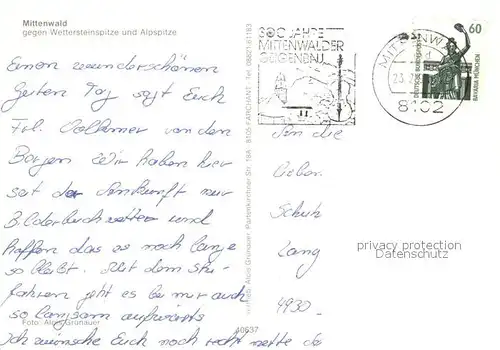 Mittenwald
gegen Wettersteinspitze und Alpspitze
Einen wunderschönen
Guten Tag sagt Euch
Frl. Volkmer von den
Bergen. Wir haben hier
seit der Ankunft nur
Bilderbuchwetter und
hoffen das es noch lange
so bleibt. Mit dem Ski-
fahren geht es bei mir auch
so langsam aufwärts
Ich wünsche Euch noch recht nette
Foto: Alois Grunauer
40637
Verlag Alois Grunauer, Partenkirchner Str. 18A, 8105 FARCHANT, Tel. 08821/6183
300 JAHRE
MITTENWALDER
GEIGENBAU
MITTENWALD
23.
8102
60
DEUTSCHE BUNDESPOST
BAVARIA MÜNCHEN
An die
lieben
Schuh
Lang
4930
privacy protection
Datenschutz